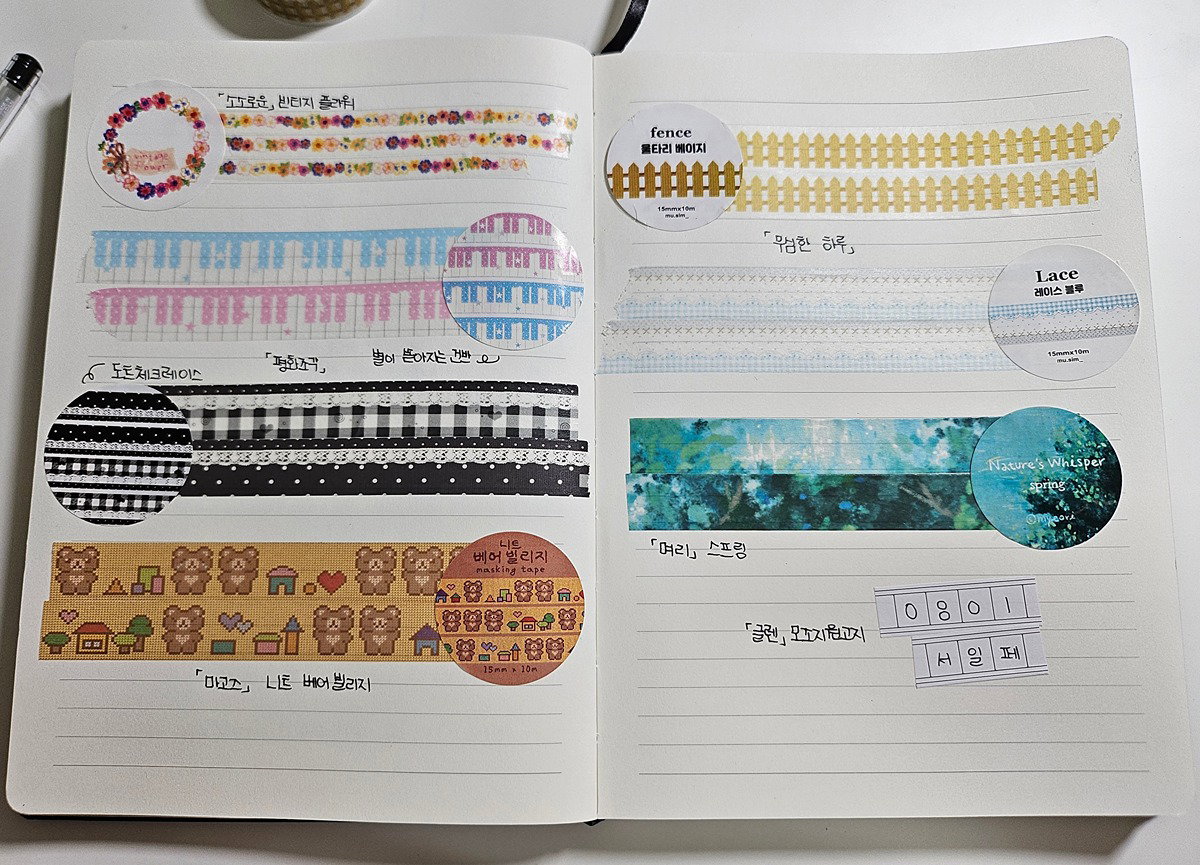 「소소로운」 빈티지 플라워
vintage
flower
「평화조각」 별이 쏟아지는 건반
도트체크레이스
니트
베어 빌리지
masking tape
15mm x 10m
「마고즈」 니트 베어 빌리지
fence
울타리 베이지
15mmx10m
mu.sim_
「무심한 하루」
Lace
레이스 블루
15mmx10m
mu.sim_
Nature's Whisper
spring
「며리」 스프링
「글렌」 모조지원고지
0801
서일페